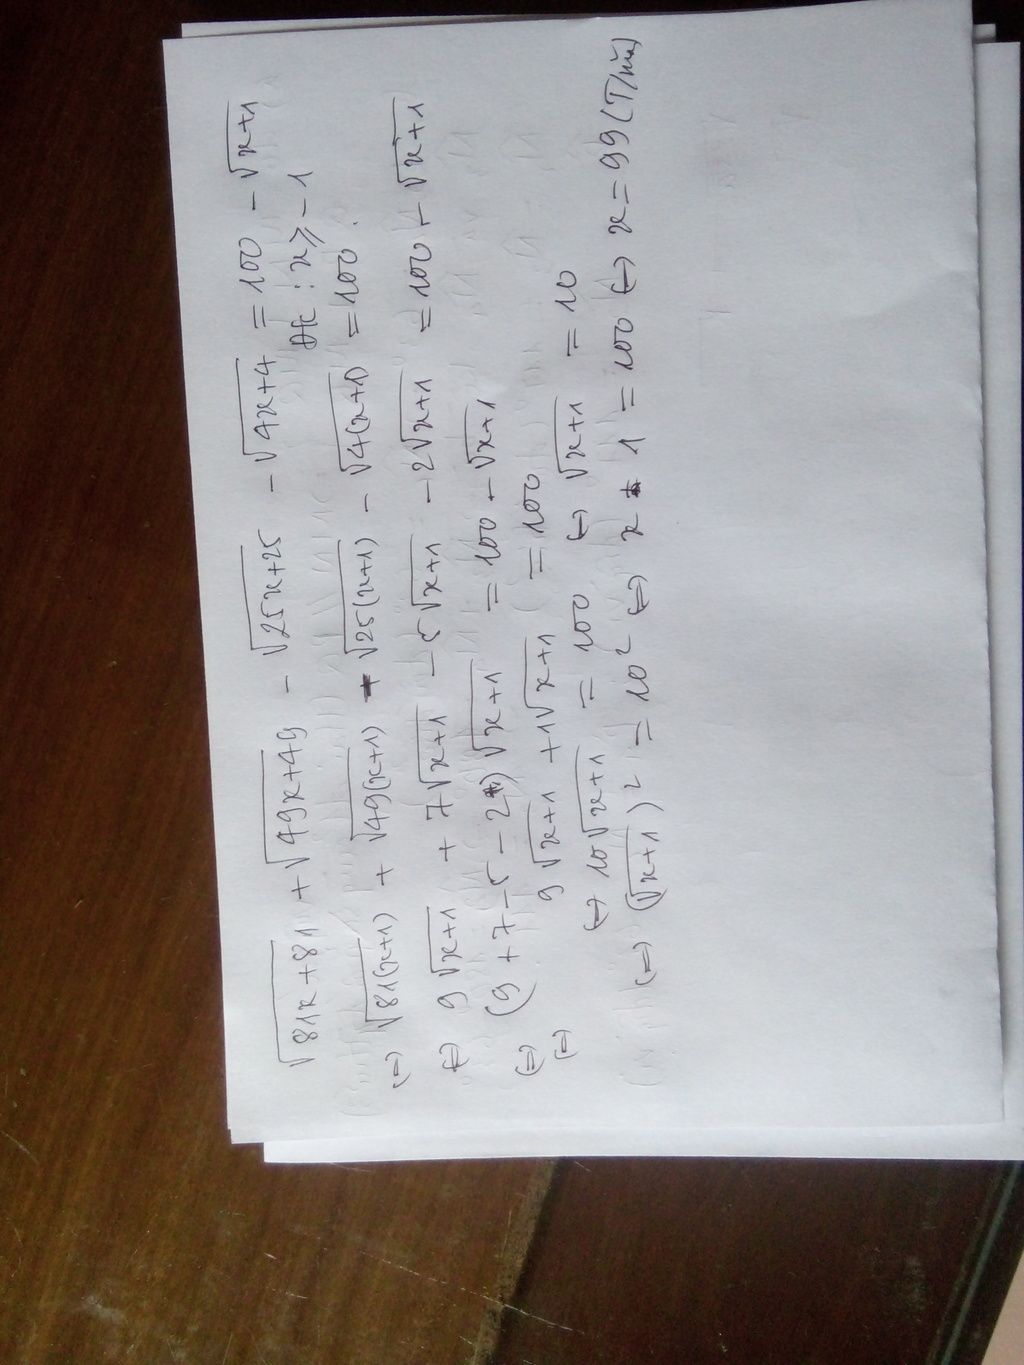 √(81x+81) + √(49x+49) - √(25x+25) - √(4x+4) = 100 - √(x+1)
ĐK : x ≥ -1
(=) √(81(x+1)) + √(49(x+1)) - √(25(x+1)) - √(4(x+1)) = 100 .
(=) 9√(x+1) + 7√(x+1) - 5√(x+1) - 2√(x+1) = 100 - √(x+1)
(=) (9 + 7 - 5 - 2)√(x+1) = 100 - √(x+1)
(=) 9√(x+1) + 1√(x+1) = 100
(=) 10√(x+1) = 100 (=) √(x+1) = 10
(=) (√(x+1))² = 10² (=) x + 1 = 100 (=) x = 99 (T/mãn)